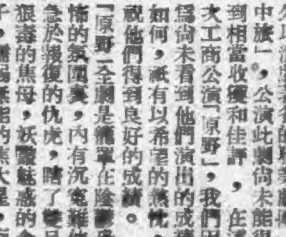 中旅」，公演此劇尚未能得
到相當收穫和佳評，在
大工商公演「原野」，我們
爲尚未看到他們演出的成績
如何，祇有以希望的熱忱，
祝他們得到良好的成績。
「原野」全劇是籠罩在陰
怖的氛圍裏，內有沉
急於報復的仇虎，瞎了
狠毒的焦母，妖豔魅惑的金
子，